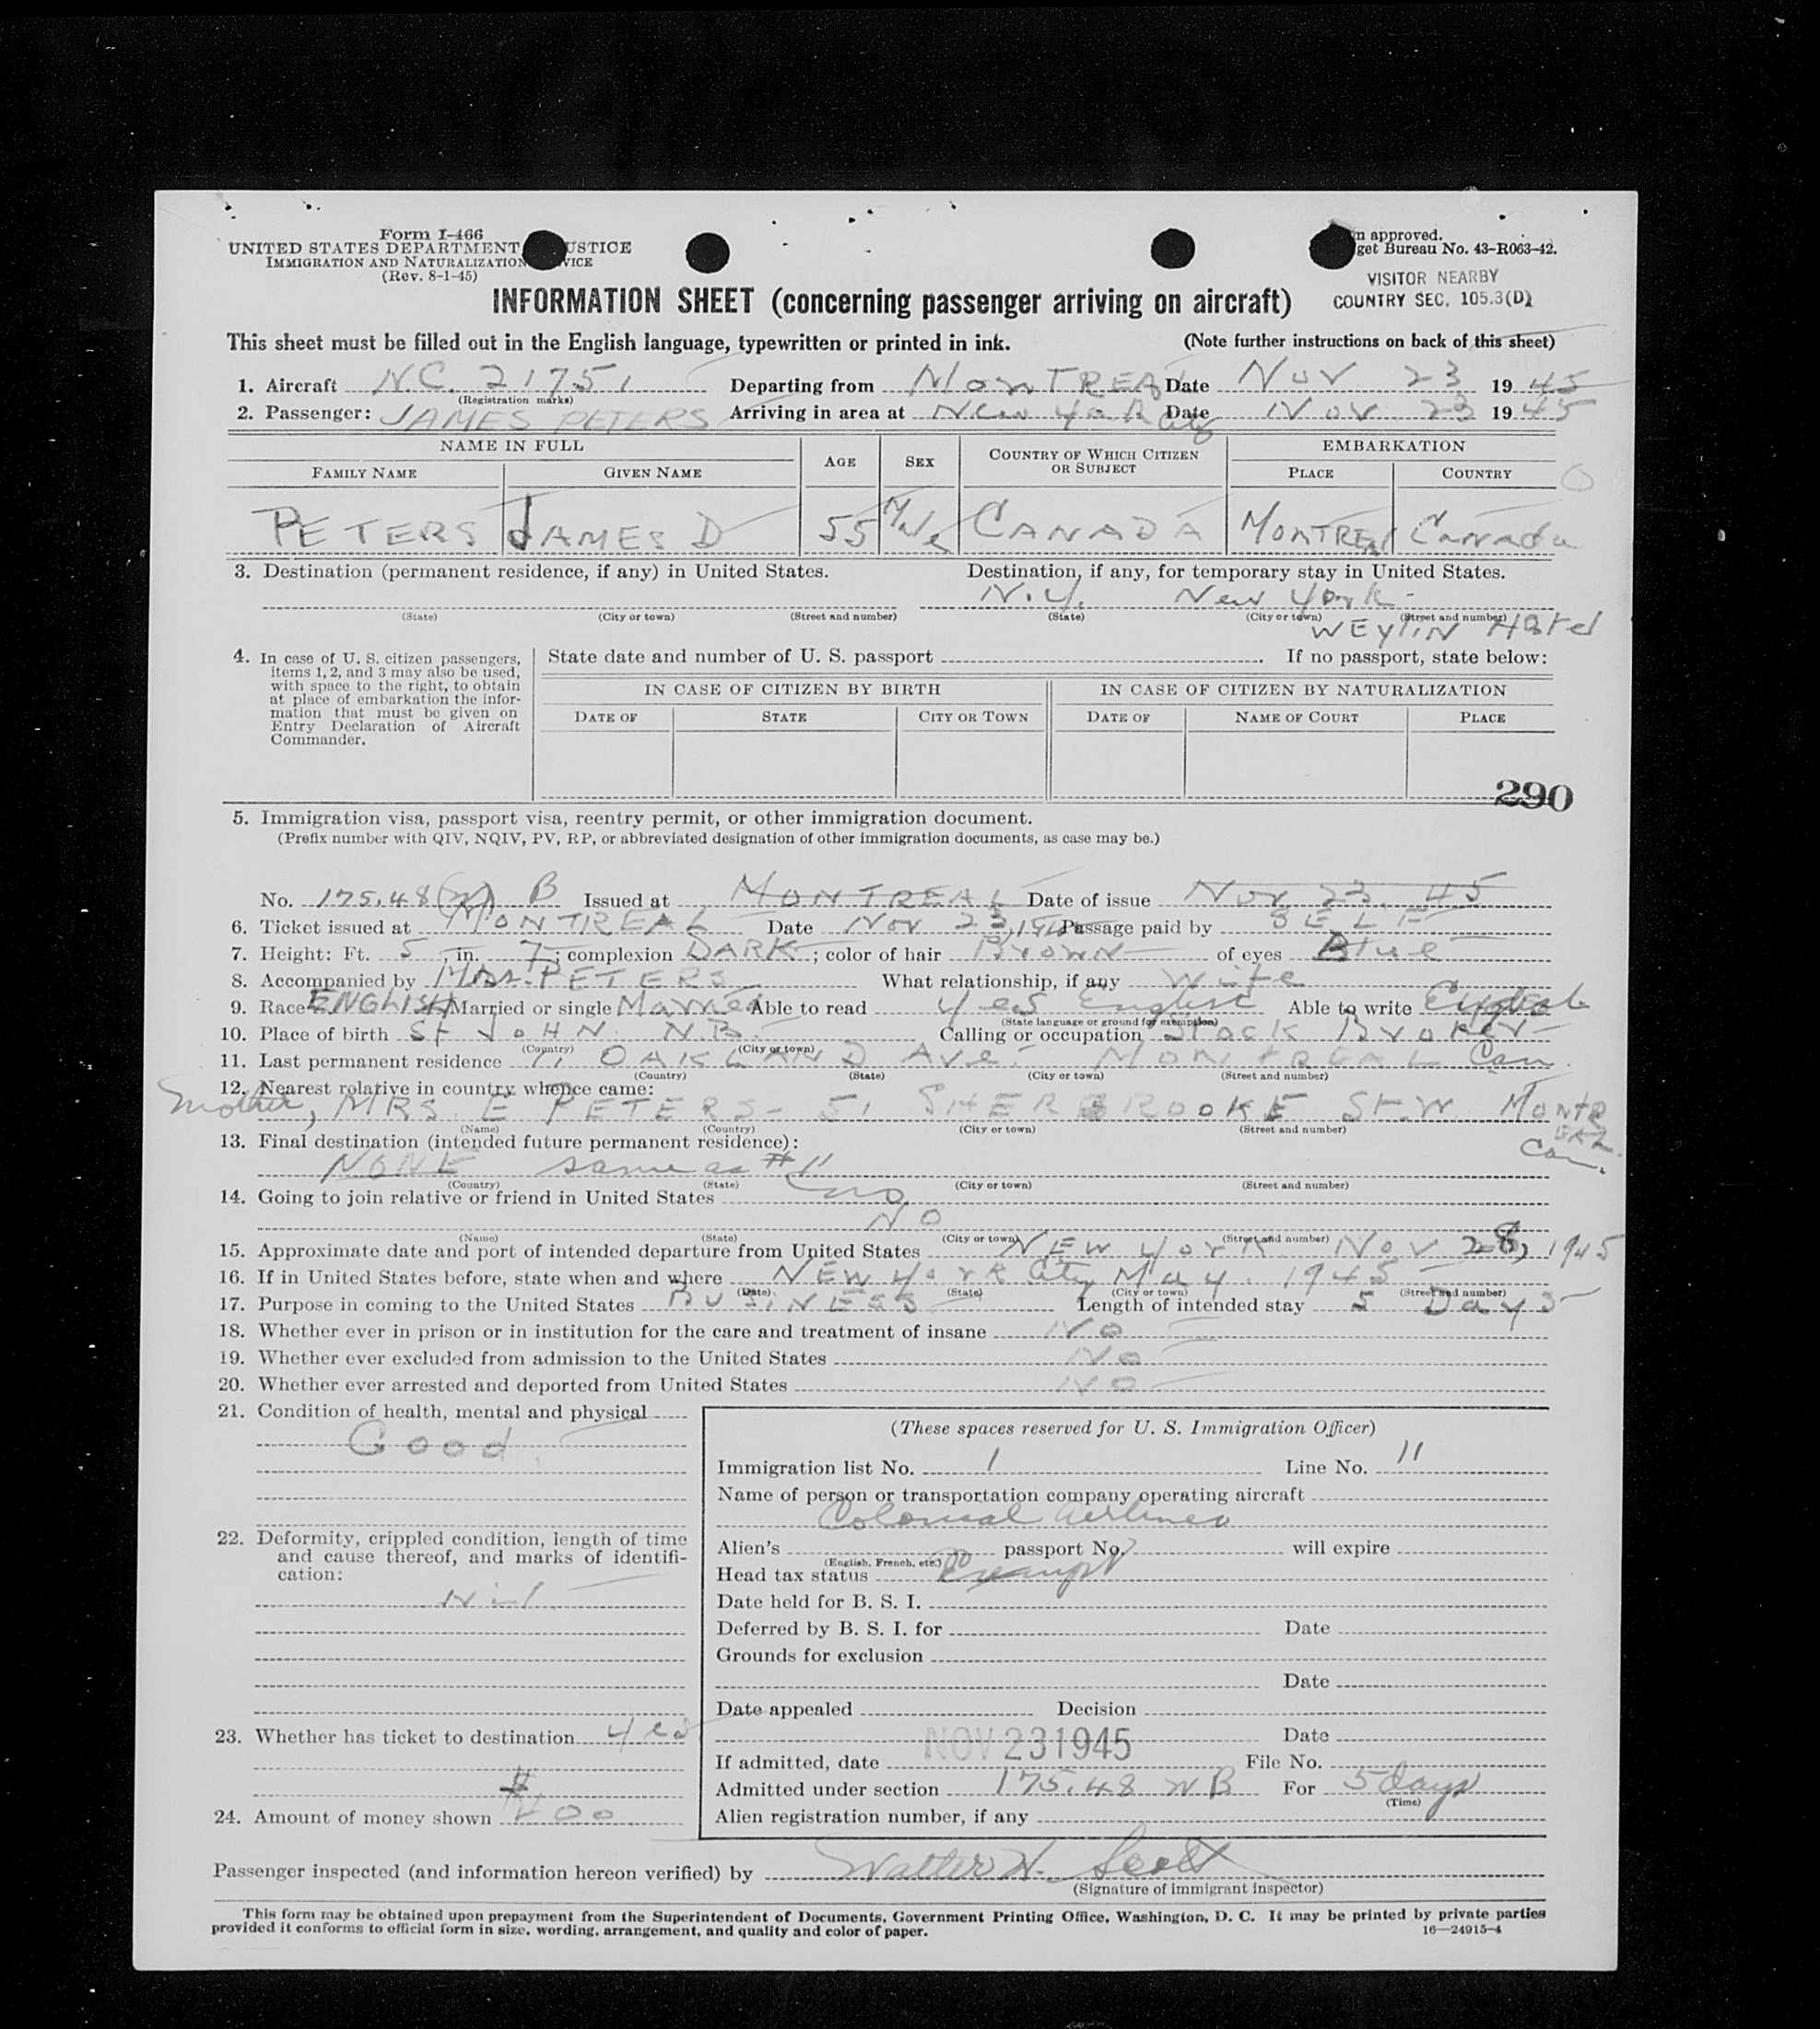 Form I-466
UNITED STATES DEPARTMENT USTICE
IMMIGRATION AND NATURALIZATION VICE
(Rev. 8-1-45)
n approved.
get Bureau No. 43-R063-42.
VISITOR NEARBY
COUNTRY SEC. 105.3(D)
INFORMATION SHEET (concerning passenger arriving on aircraft)
This sheet must be filled out in the English language, typewritten or printed in ink. (Note further instructions on back of this sheet)
1. Aircraft N.C. 21751 Departing from MONTREAL Date Nov 23 19 45
(Registration marks)
2. Passenger: JAMES PETERS Arriving in area at New York City Date Nov 23 19 45
NAME IN FULL AGE SEX COUNTRY OF WHICH CITIZEN OR SUBJECT EMBARKATION
FAMILY NAME GIVEN NAME PLACE COUNTRY
PETERS JAMES D 55 Male CANADA MONTREAL Canada
3. Destination (permanent residence, if any) in United States. Destination, if any, for temporary stay in United States.
N.Y. New York
(State) (City or town) (Street and number) (State) (City or town) (Street and number)
WEYLIN Hotel
4. In case of U. S. citizen passengers, items 1, 2, and 3 may also be used, with space to the right, to obtain at place of embarkation the information that must be given on Entry Declaration of Aircraft Commander.
State date and number of U. S. passport . If no passport, state below:
IN CASE OF CITIZEN BY BIRTH IN CASE OF CITIZEN BY NATURALIZATION
DATE OF STATE CITY OR TOWN DATE OF NAME OF COURT PLACE
290
5. Immigration visa, passport visa, reentry permit, or other immigration document.
(Prefix number with QIV, NQIV, PV, RP, or abbreviated designation of other immigration documents, as case may be.)
No. 175.48 B Issued at MONTREAL Date of issue Nov 23. 45
6. Ticket issued at MONTREAL Date Nov 23, 1945 Passage paid by SELF
7. Height: Ft. 5, in. 7; complexion DARK; color of hair Brown of eyes Blue
8. Accompanied by Mrs. PETERS What relationship, if any Wife
9. Race ENGLISH Married or single Married Able to read yes English Able to write English
(State language or ground for exemption)
10. Place of birth St JOHN N.B. Calling or occupation Stock Broker
(Country) (City or town)
11. Last permanent residence 17 OAKLAND Ave. MONTREAL Can
(Country) (State) (City or town) (Street and number)
12. Nearest relative in country whence came:
Mother, MRS. E PETERS - 51 SHERBROOKE St. W. MONTREAL Can.
(Name) (Country) (City or town) (Street and number)
13. Final destination (intended future permanent residence):
NONE same as #11
(Country) (State) (City or town) (Street and number)
14. Going to join relative or friend in United States no
NO
(Name) (State) (City or town) (Street and number)
15. Approximate date and port of intended departure from United States NEW YORK Nov 28, 1945
16. If in United States before, state when and where NEW YORK City May. 1945
(Date) (State) (City or town) (Street and number)
17. Purpose in coming to the United States BUSINESS Length of intended stay 5 Days
18. Whether ever in prison or in institution for the care and treatment of insane No
19. Whether ever excluded from admission to the United States No
20. Whether ever arrested and deported from United States NO
21. Condition of health, mental and physical
Good
(These spaces reserved for U. S. Immigration Officer)
Immigration list No. 1 Line No. 11
Name of person or transportation company operating aircraft
Colonial Airlines
22. Deformity, crippled condition, length of time and cause thereof, and marks of identification:
Nil
Alien's passport No. will expire
(English, French, etc.)
Head tax status Exempt
Date held for B. S. I.
Deferred by B. S. I. for Date
Grounds for exclusion
Date
Date appealed Decision
23. Whether has ticket to destination yes
Date
If admitted, date NOV 23 1945 File No.
Admitted under section 175.48 B For 5 days
(Time)
24. Amount of money shown $200
Alien registration number, if any
Passenger inspected (and information hereon verified) by Walter H. Scott
(Signature of immigrant inspector)
This form may be obtained upon prepayment from the Superintendent of Documents, Government Printing Office, Washington, D. C. It may be printed by private parties
provided it conforms to official form in size, wording, arrangement, and quality and color of paper. 16—24915-4